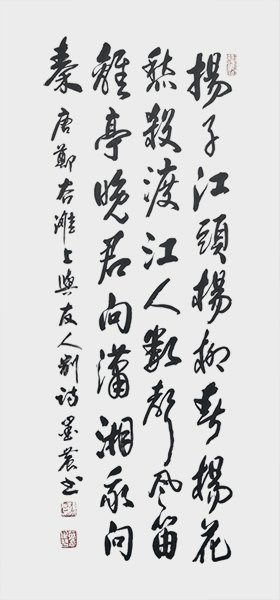 揚子江頭楊柳春楊花
愁殺渡江人數聲風笛
離亭晚君向瀟湘我向
秦 唐鄭谷淮上與友人別詩 墨農書